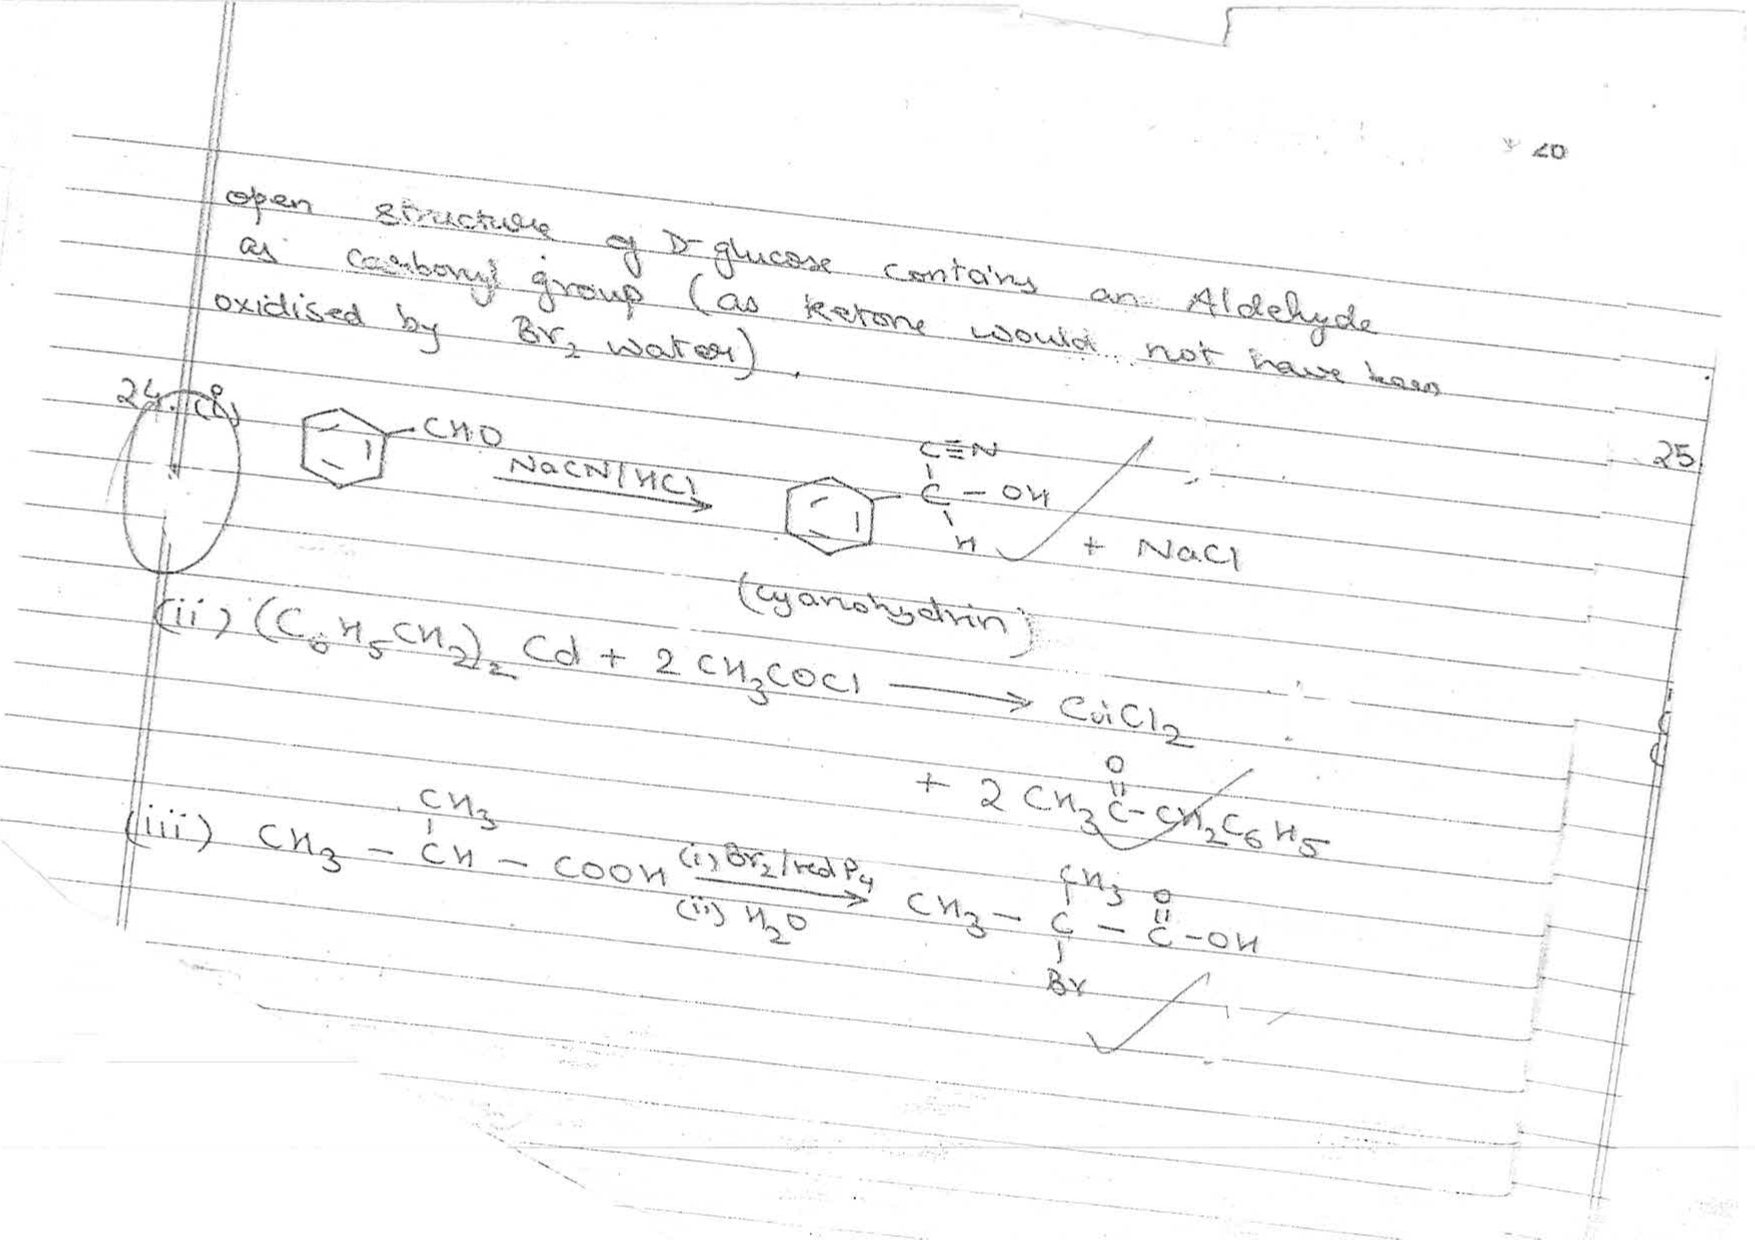 20
open structure of D-glucose contains an Aldehyde
as carbonyl group (as ketone would not have been
oxidised by Br₂ water).
24. (i) CHO NaCN/HCl C≡N
C - OH
H + NaCl
(cyanohydrin)
25
(ii) (C₆H₅CH₂)₂ Cd + 2 CH₃COCl ⟶ CdCl₂
O
+ 2 CH₃C-CH₂C₆H₅
CH₃ CH₃ O
(iii) CH₃ - CH - COOH (i) Br₂/red P₄ CH₃ - C - C - OH
(ii) H₂O
Br